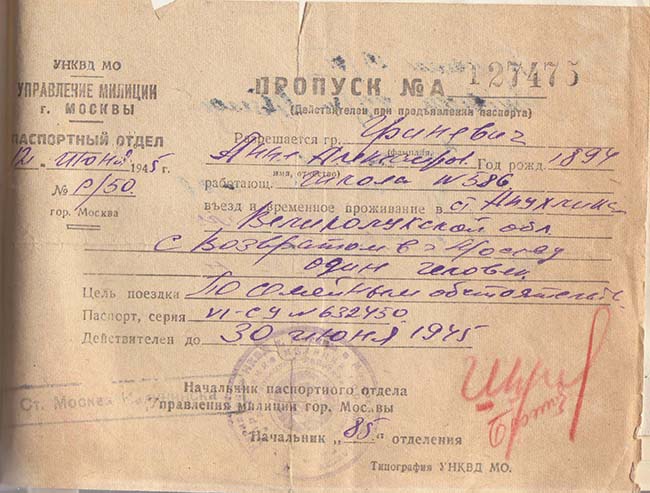 УНКВД МО
УПРАВЛЕНИЕ МИЛИЦИИ
г. МОСКВЫ
ПАСПОРТНЫЙ ОТДЕЛ
12 июня 1945 г.
№ Р/50
гор. Москва
ПРОПУСК № А 127475
(Действителен при предъявлении паспорта)
Разрешается гр. Уриневич
(фамилия,
Анна Александров. Год рожд. 1894
имя, отчество)
работающ. школа № 586
въезд и временное проживание в ст.
Великолукской обл
с возвратом в г Москву
один человек
Цель поездки По семейным обстоятельс
Паспорт, серия VI-СУ № 632450.
Действителен до 30 июня 1945
Начальник паспортного отдела
Управления милиции гор. Москвы
Начальник „85" отделения
Ст. Москва
Типография УНКВД МО.